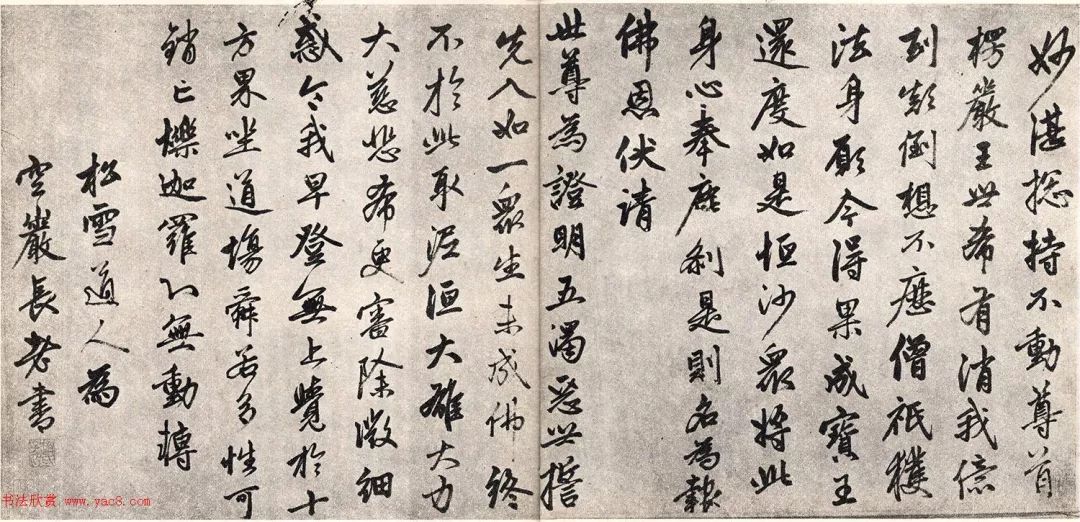 妙湛捴持不動尊首
楞嚴王世希有消我億
劫顛倒想不歷僧祇獲
法身願今得果成寶王
還度如是恒沙衆將此
身心奉塵刹是則名為報
佛恩伏請
世尊為證明五濁惡世誓
先入如一衆生未成佛終
不於此取泥洹大雄大力
大慈悲希更審除微細
惑令我早登無上覺於十
方界坐道場舜若多性可
銷亡爍迦羅心無動轉
松雪道人為
空巖長老書
书法欣赏 www.yac8.com